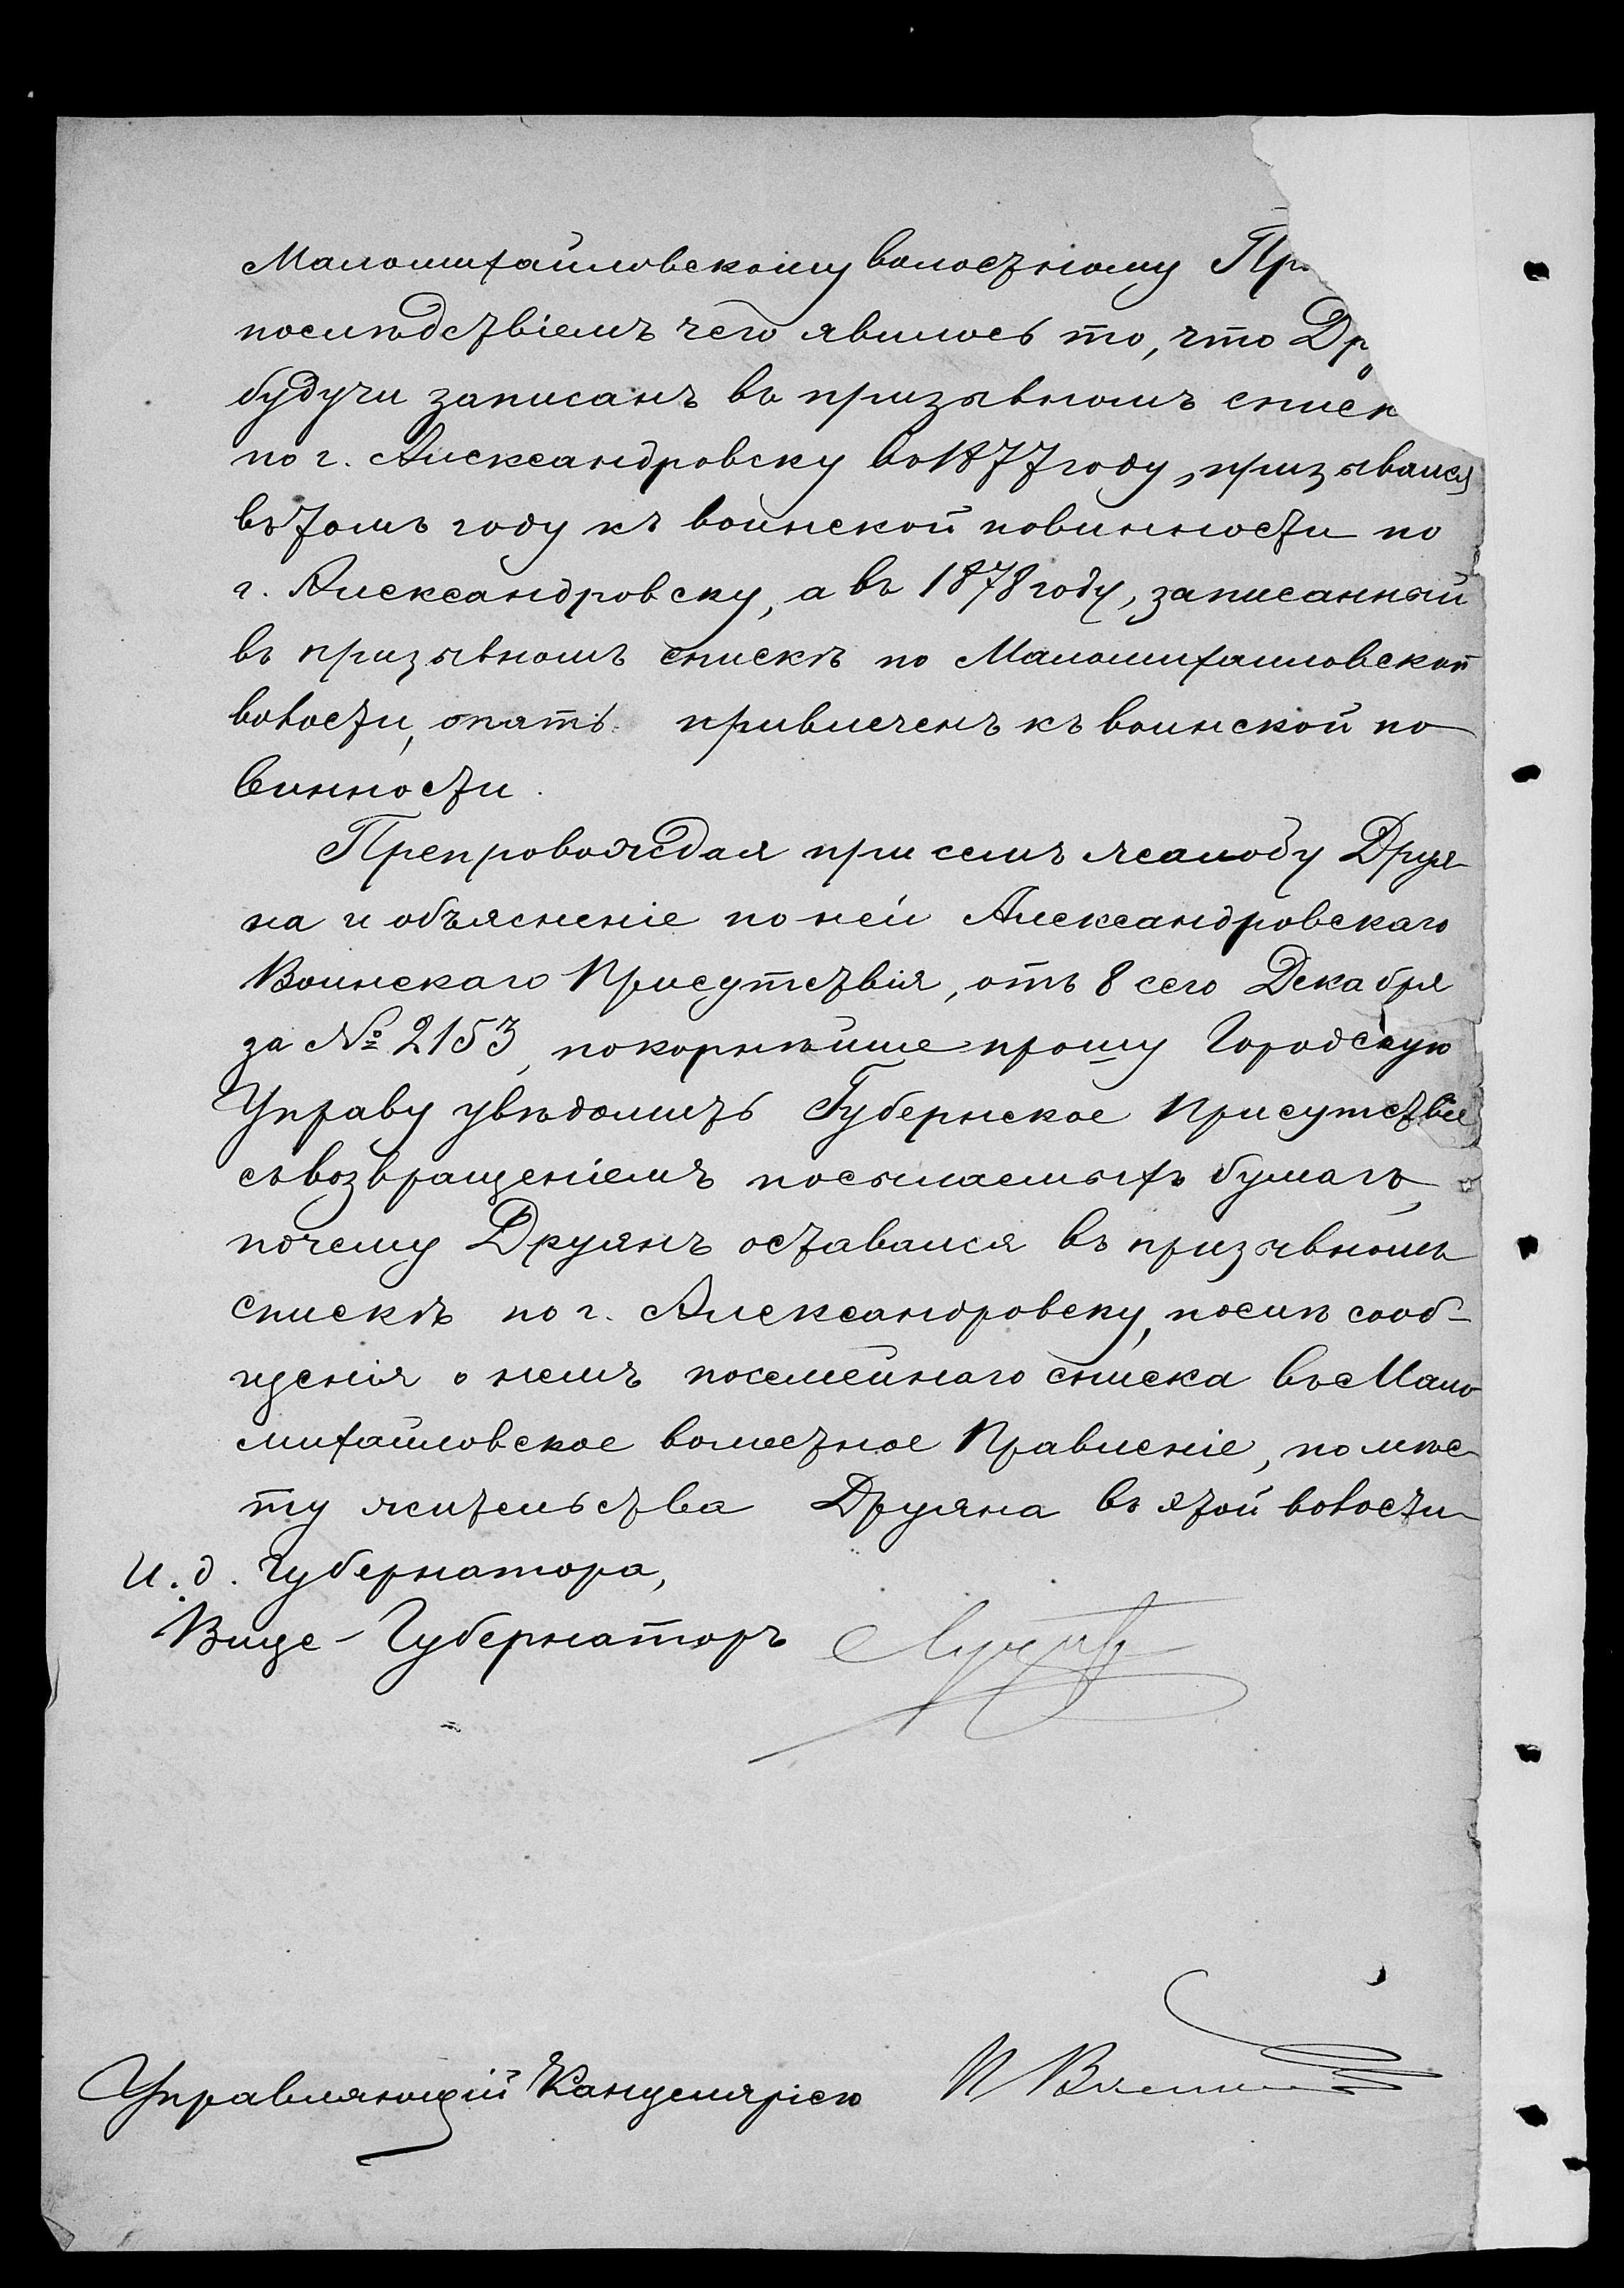 Маломихайловскому волостному Пр
послѣдствіемъ чего явилось то, что Др
будучи записанъ въ призывномъ списк
по г. Александровску въ 1877 году, призывался
въ томъ году къ воинской повинности по
г. Александровску, а въ 1878 году, записанный
въ призывномъ спискѣ по Маломихайловской
волости, опять привлеченъ къ воинской по
винности.
Препровождая при семъ жалобу Друя-
на и объясненіе по ней Александровскаго
Воинскаго Присутствія, отъ 8 сего Декабря
за № 2153, покорнѣйше прошу Городскую
Управу увѣдомить Губернское Присутствіе
съ возвращеніемъ посылаемыхъ бумагъ,
почему Друянъ оставался въ призывномъ
спискѣ по г. Александровску, послѣ сооб-
щенія о немъ посемейнаго списка въ Мало
михайловское волостное Правленіе, по мѣс-
ту жительства Друяна въ этой волости
И. д. Губернатора,
Вице-Губернаторъ
Управляющій Канцеляріею